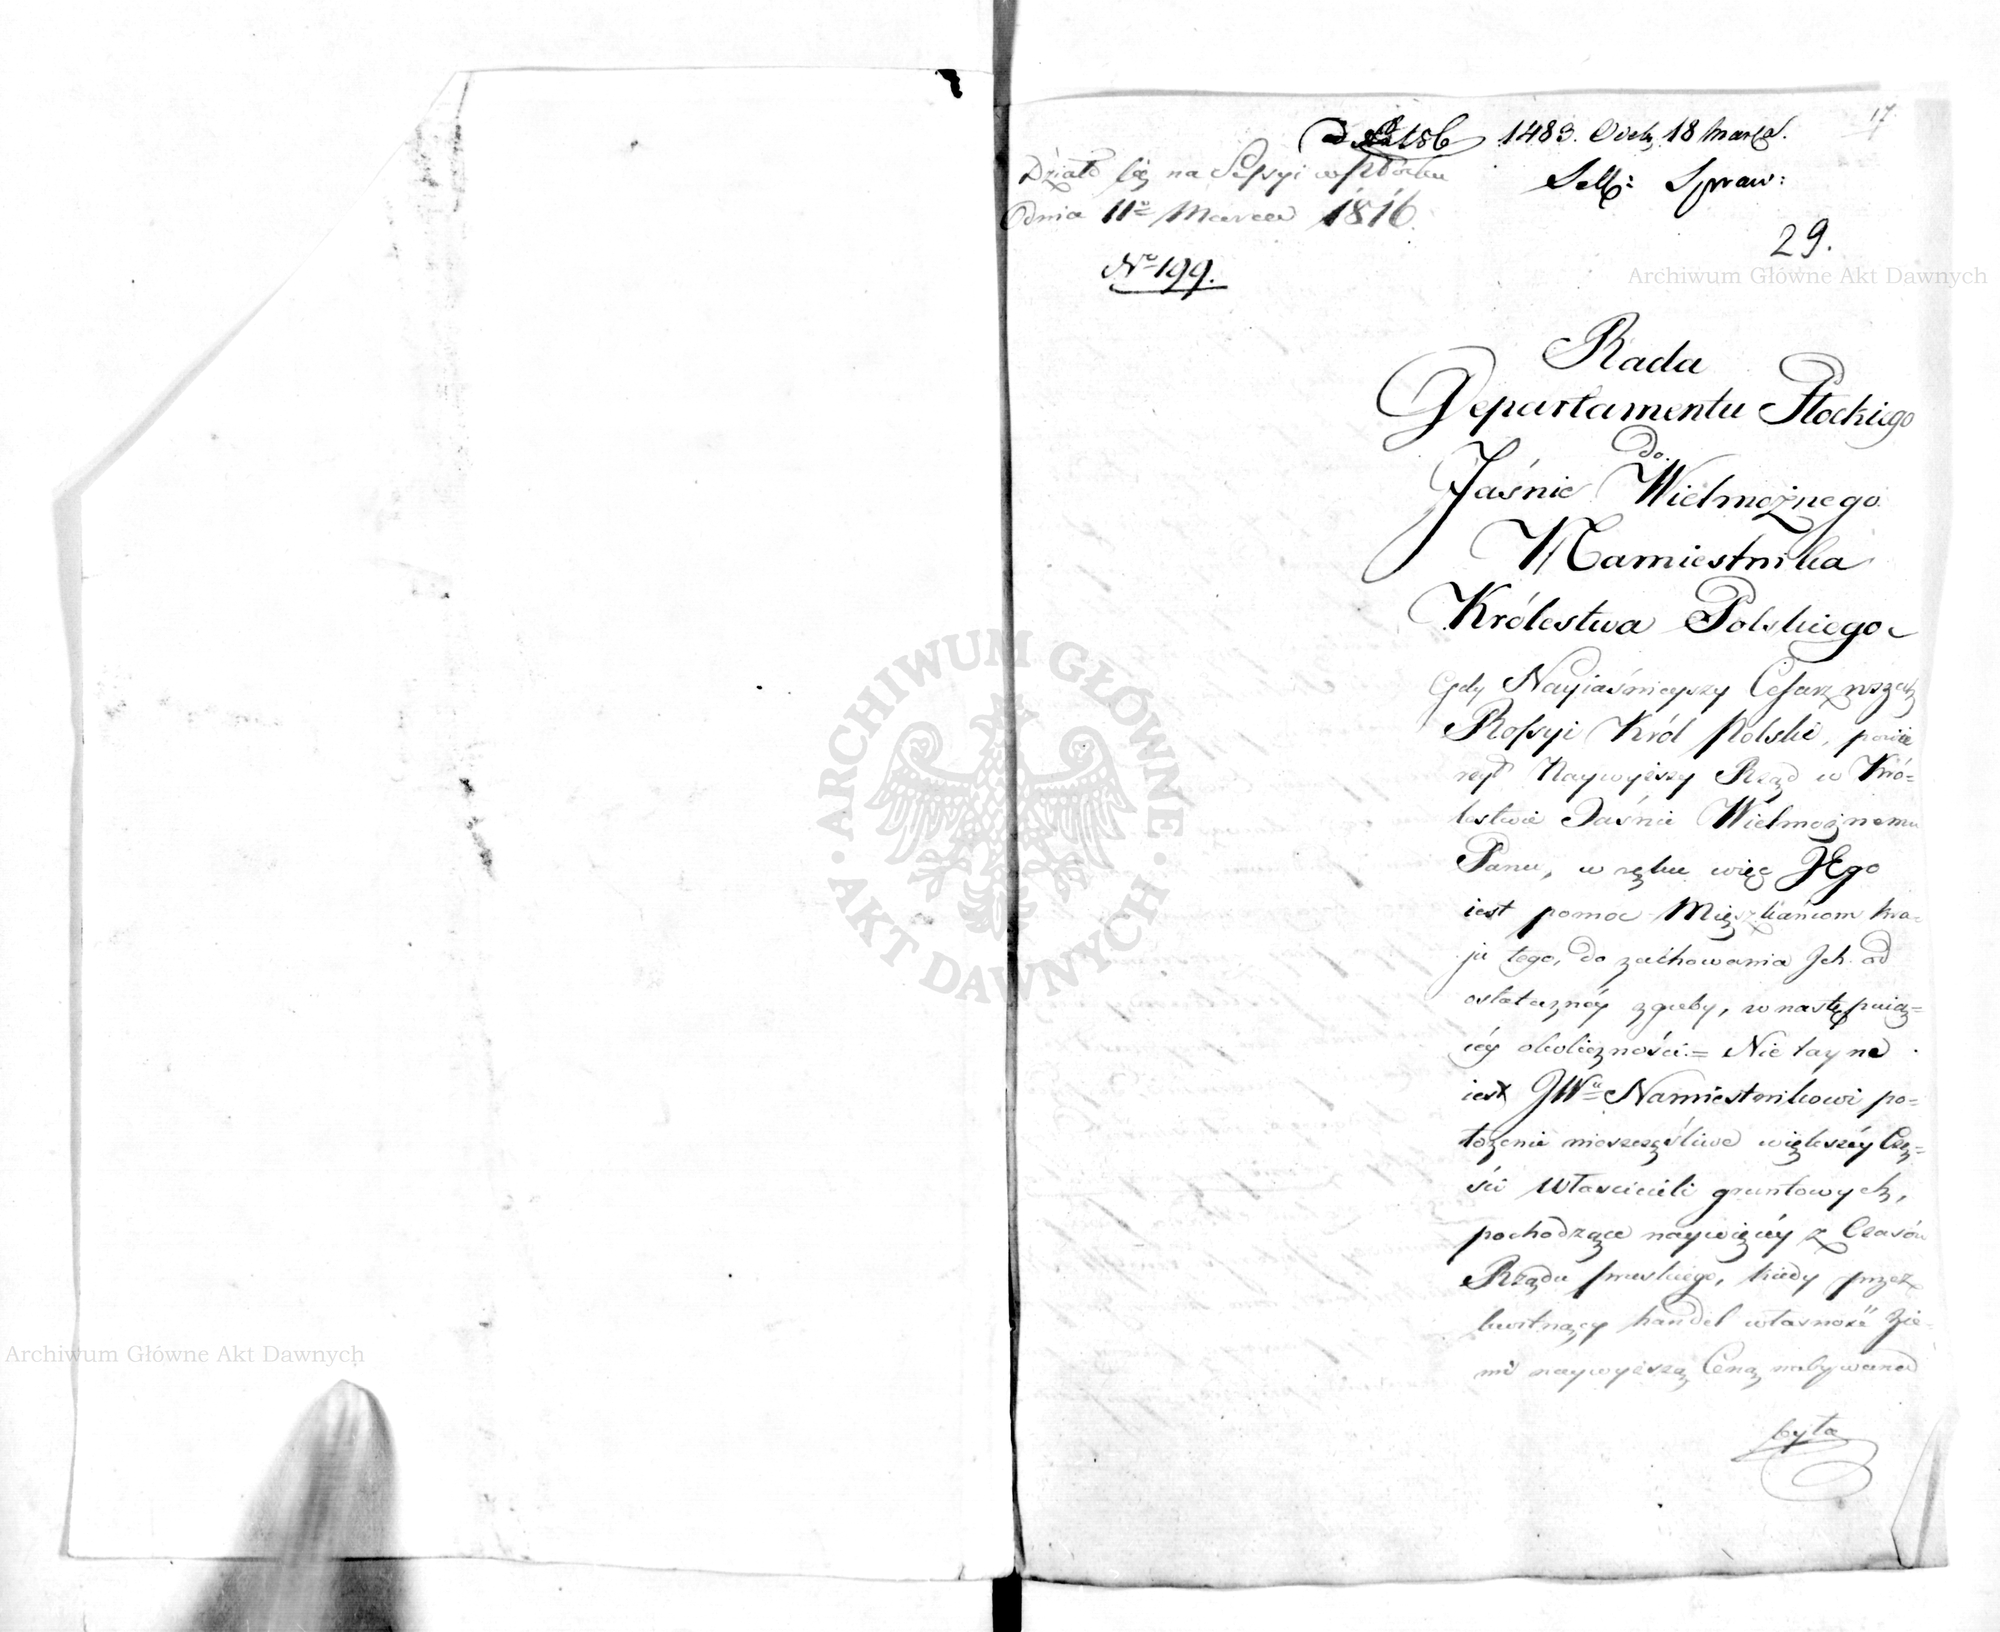 17.
1483. Odeb. 18 Marca.
Działo się na Sessyi w Płocku
Dnia 11º Marca 1816.
Sekr: Spraw:
29.
Nº 199.
Rada
Departamentu Płockiego
do
Jaśnie Wielmożnego
Namiestnika
Królestwa Polskiego
Gdy Nayiaśnieyszy Cesarz wszech
Rossyi Król Polski, powie
rzył Naywyższy Rząd w Kró=
lestwie Jaśnie Wielmożnemu
Panu, w ręku więc JEgo
iest pomoc Mięszkańcom kra=
ju tego, do zachowania Jch od
ostateczney zguby, w następuią=
cey okoliczności.= Nie tayne
iest JWu Namiestnikowi po=
łożenie nieszczęśliwe większéy Czę=
ści Włascicieli gruntowych,
pochodzące naywięcéy z Czasów
Rządu pruskiego, kiedy przez
kwitnący handel własność Zie=
mi naywyższą Ceną nabywana
była
Archiwum Główne Akt Dawnych
Archiwum Główne Akt Dawnych
ARCHIWUM GŁÓWNE · AKT DAWNYCH ·